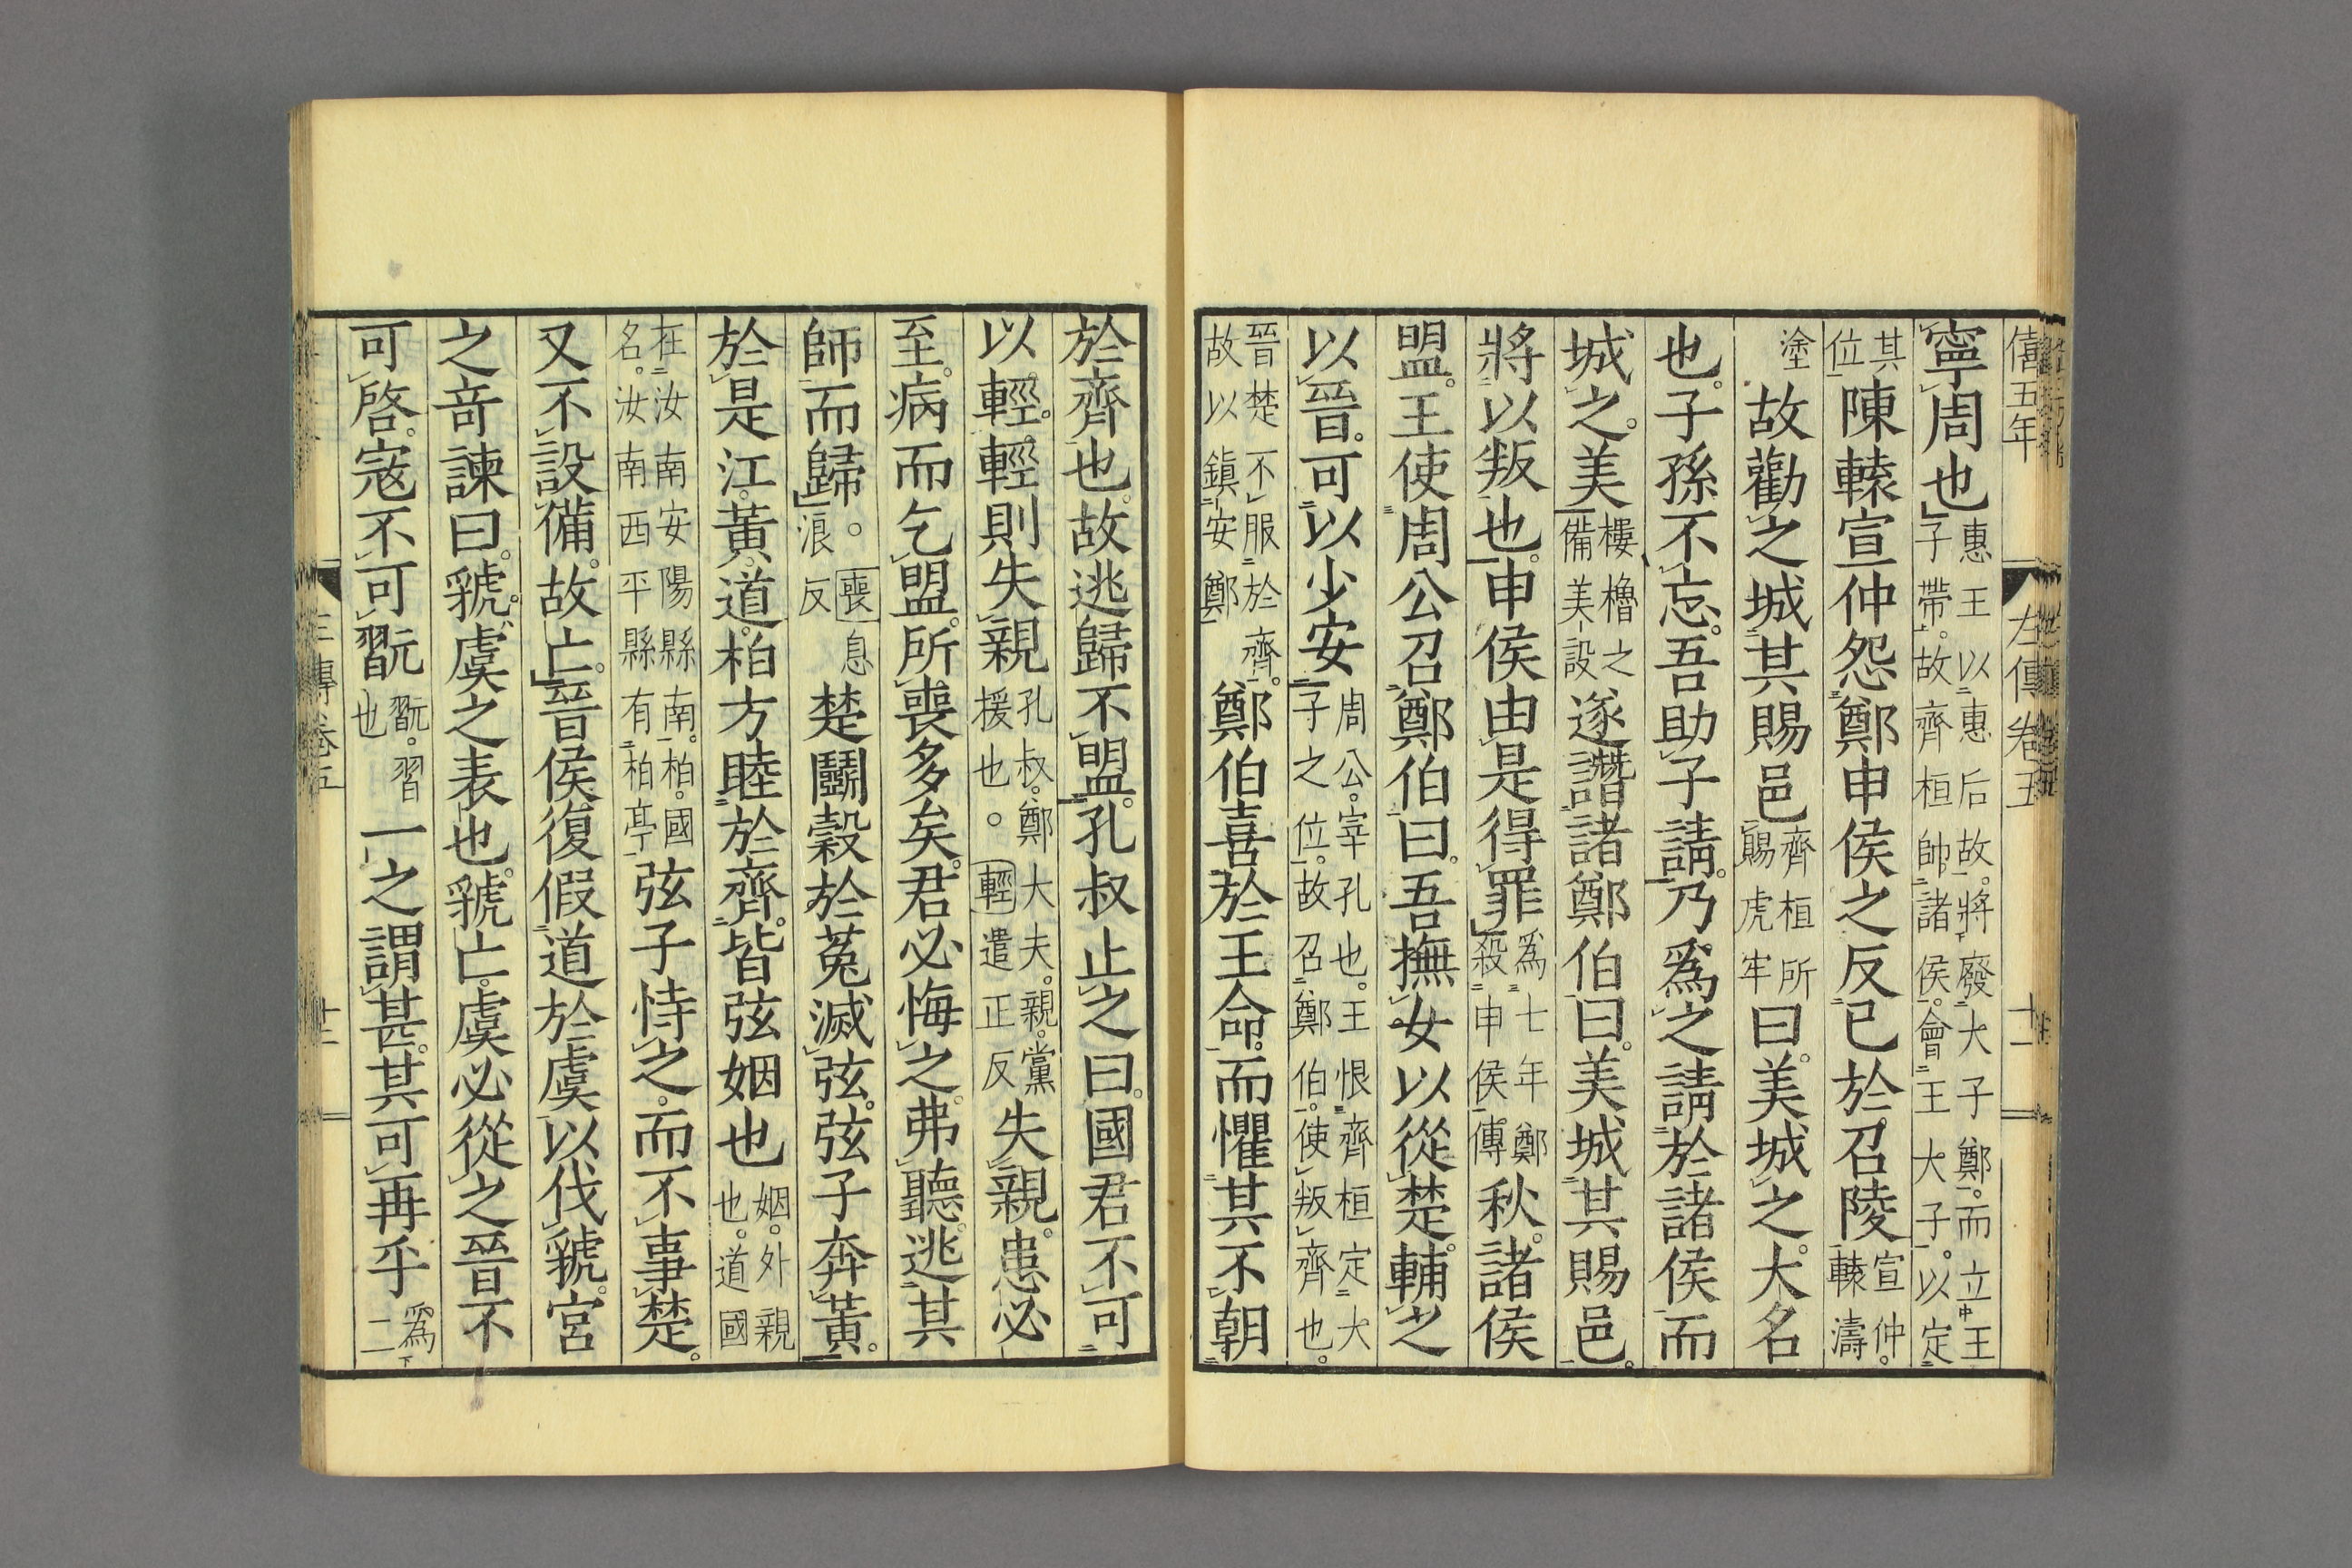 僖五年 左傳卷五 十一
寧周也惠王以惠后故將廢大子鄭而立王子帶故齊桓帥諸侯會王大子以定
其位陳轅宣仲怨鄭申侯之反己於召陵宣仲轅濤
塗故勸之城其賜邑齊桓所賜虎牢曰美城之大名
也子孫不忘吾助子請乃爲之請於諸侯而
城之美樓櫓之備美設遂譖諸鄭伯曰美城其賜邑
將以叛也申侯由是得罪爲七年鄭殺申侯傳秋諸侯
盟王使周公召鄭伯曰吾撫女以從楚輔之
以晉可以少安周公宰孔也王恨齊桓定大子之位故召鄭伯使叛齊也
晉楚不服於齊故以鎮安鄭鄭伯喜於王命而懼其不朝
於齊也故逃歸不盟孔叔止之曰國君不可
以輕輕則失親孔叔鄭大夫親黨援也。輕遣正反失親患必
至病而乞盟所喪多矣君必悔之弗聽逃其
師而歸。喪息浪反楚鬭穀於菟滅弦弦子奔黃
於是江黃道柏方睦於齊皆弦姻也姻外親也道國
在汝南安陽縣南柏國名汝南西平縣有柏亭弦子恃之而不事楚
又不設備故亡晉侯復假道於虞以伐虢宮
之奇諫曰虢虞之表也虢亡虞必從之晉不
可啓寇不可翫翫習也一之謂甚其可再乎爲二
左傳卷五 十二